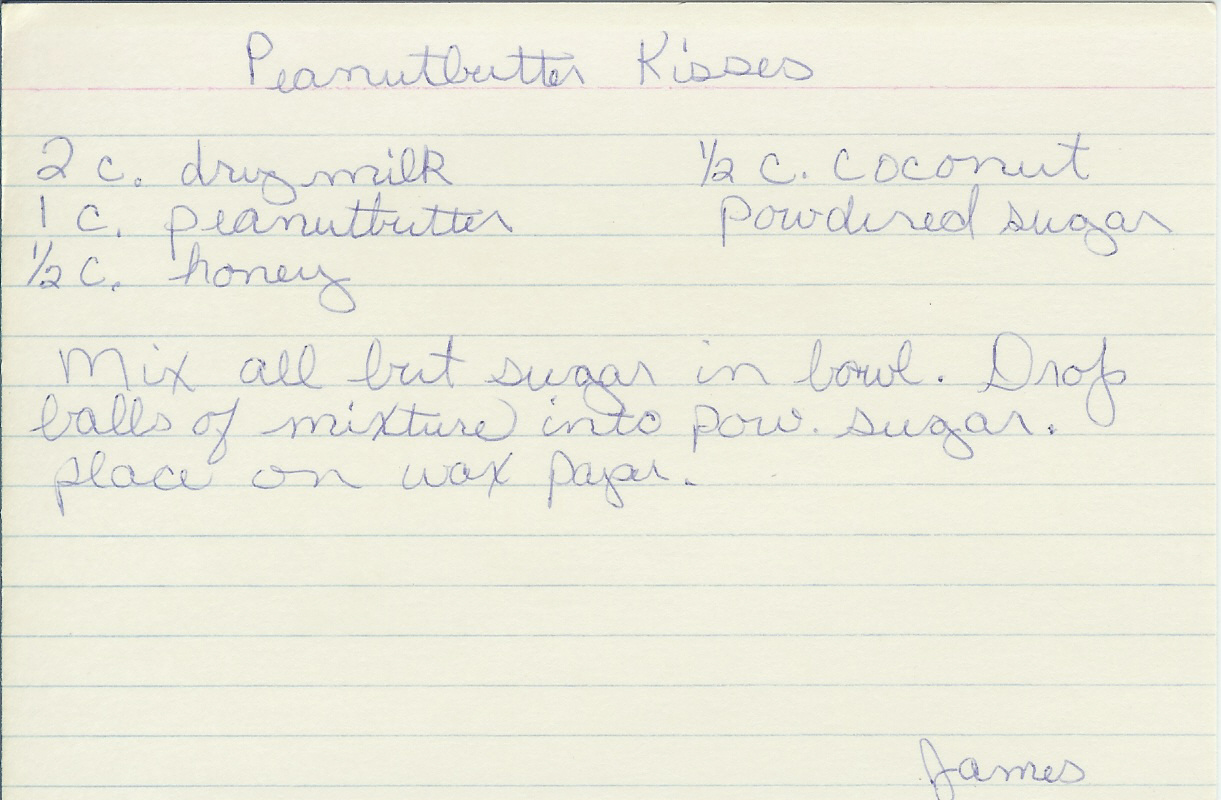 Peanutbutter Kisses
2 c. dry milk
1 c. peanutbutter
½ c. honey
½ c. coconut
powdered sugar
Mix all but sugar in bowl. Drop
balls of mixture into pow. sugar.
place on wax paper.
James